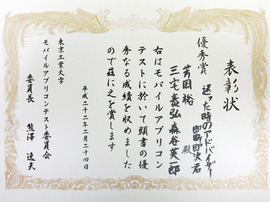 表彰状
優秀賞
迷った時のアドバイザー
即断即決君
芳岡裕
三宅泰弘 森谷英一郎 殿
右はモバイルアプリコン
テストに於いて頭書の優
秀なる成績を収めました
ので茲に之を賞します
平成二十二年二月二十四日
東京工業大学
モバイルアプリコンテスト委員会
委員長 熊澤逸夫